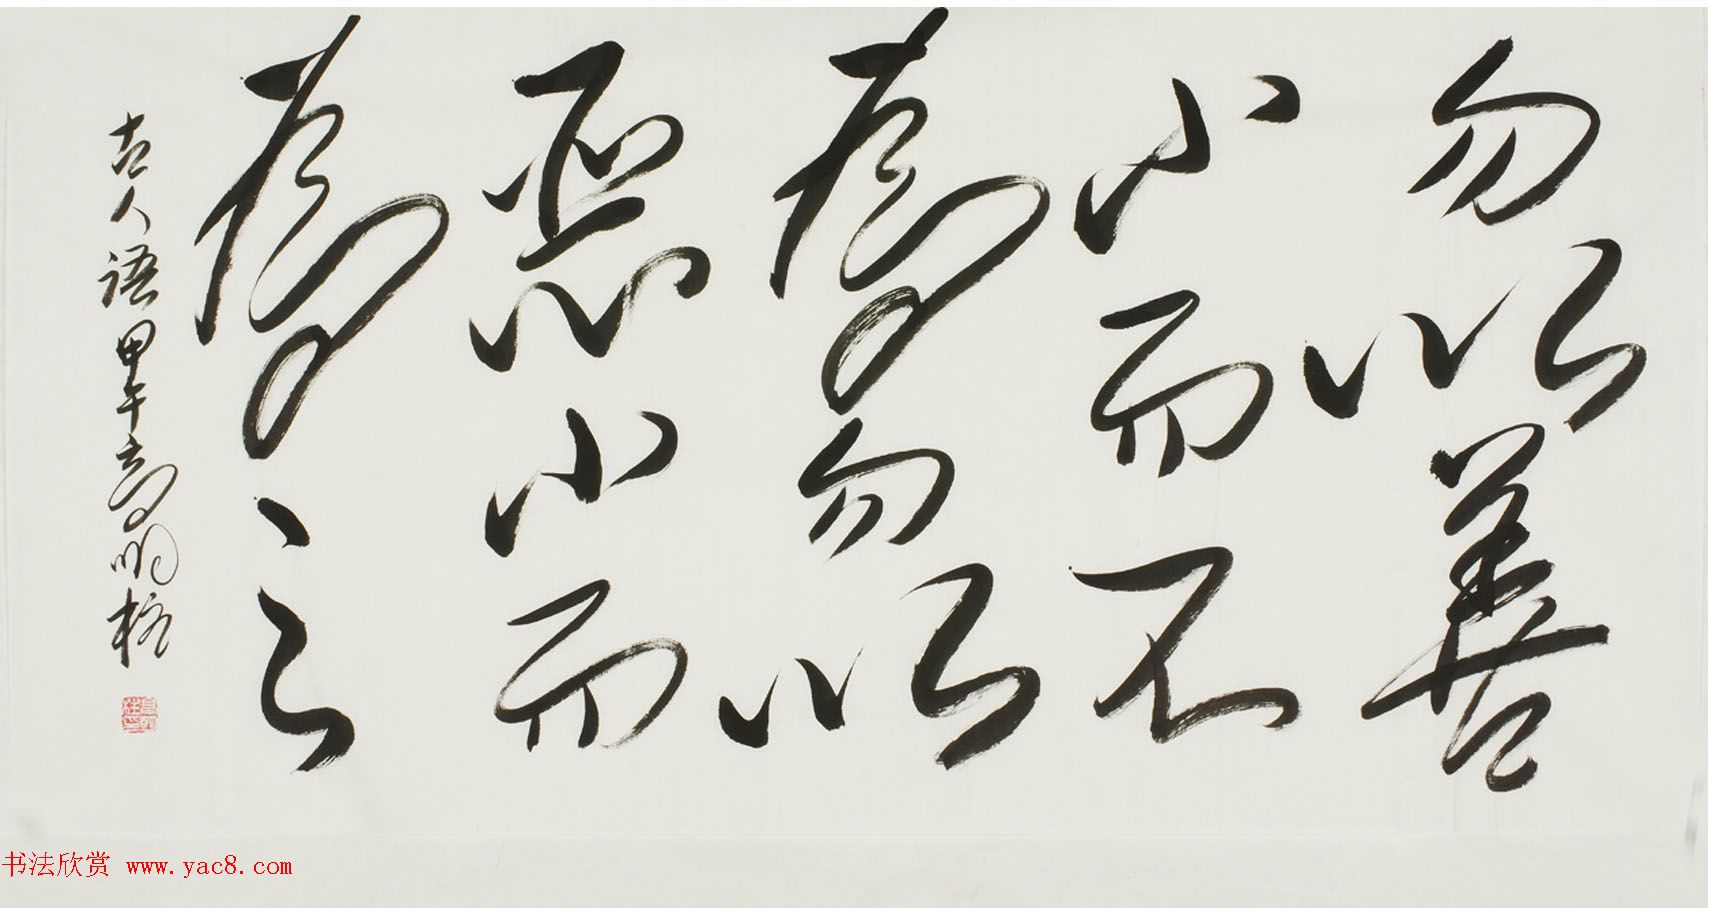 勿以善
小而不
為勿以
惡小而
為之
古人語甲午高明柱
书法欣赏 www.yac8.com